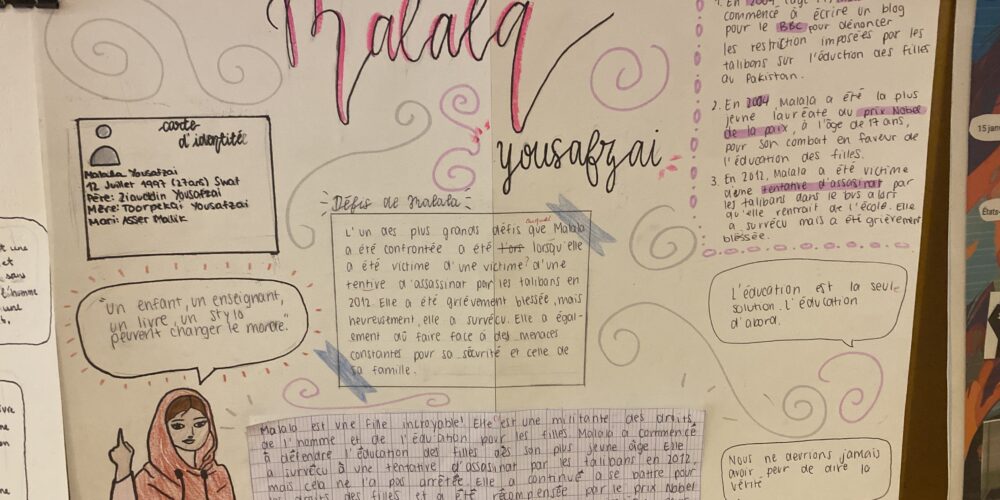 Malala
yousafzai
carte
d'identité
Malala Yousafzai
12 Juillet 1997 (27ans) Swat
Père: Ziauddin Yousafzai
Mère: Toorpekai Yousafzai
Mari: Asser Malik
"Un enfant, un enseignant,
un livre, un stylo
peuvent changer le monde."
Défis de Malala
L'un des plus grands défis auquel que Malala
a été confrontée a été lors lorsqu'elle
a été victime d'une victime? d'une
tentive d'assassinat par les talibans en
2012. Elle a été griévement blessée, mais
heureusement, elle a survécu. Elle a égal-
ement dû faire face à des menaces
constantes pour sa sécurité et celle de
sa famille.
Malala est une fille incroyable! Elle est une militante des droits
de l'homme et de l'éducation pour les filles. Malala a commencé
à défendre l'éducation des filles dès son plus jeune âge. Elle
a survécu à une tentative d'assassinat par les talibans en 2012,
mais cela ne l'a pas arrêtée. Elle a continué à se battre pour
droits des filles et a été récompensée par le prix Nobel
1. En
commencé à écrire un blog
pour le BBC pour dénoncer
les restriction imposées par les
talibans sur l'éduction des filles
au Pakistan.
2. En 2004, Malala a été la plus
jeune lauréate du prix Nobel
de la paix, à l'âge de 17 ans,
pour son combat en faveur de
l'éducation des filles.
3. En 2012, Malala a été victime
d'une tentative d'assasinat par
les talibans dans le bus alors
qu'elle rentrait de l'école. Elle
a survécu mais a été grièvement
bléssée.
L'éducation est la seule
solution. L'éducation
d'abord.
Nous ne devrions jamais
avoir peur de dire la
vérité
15 janv
États